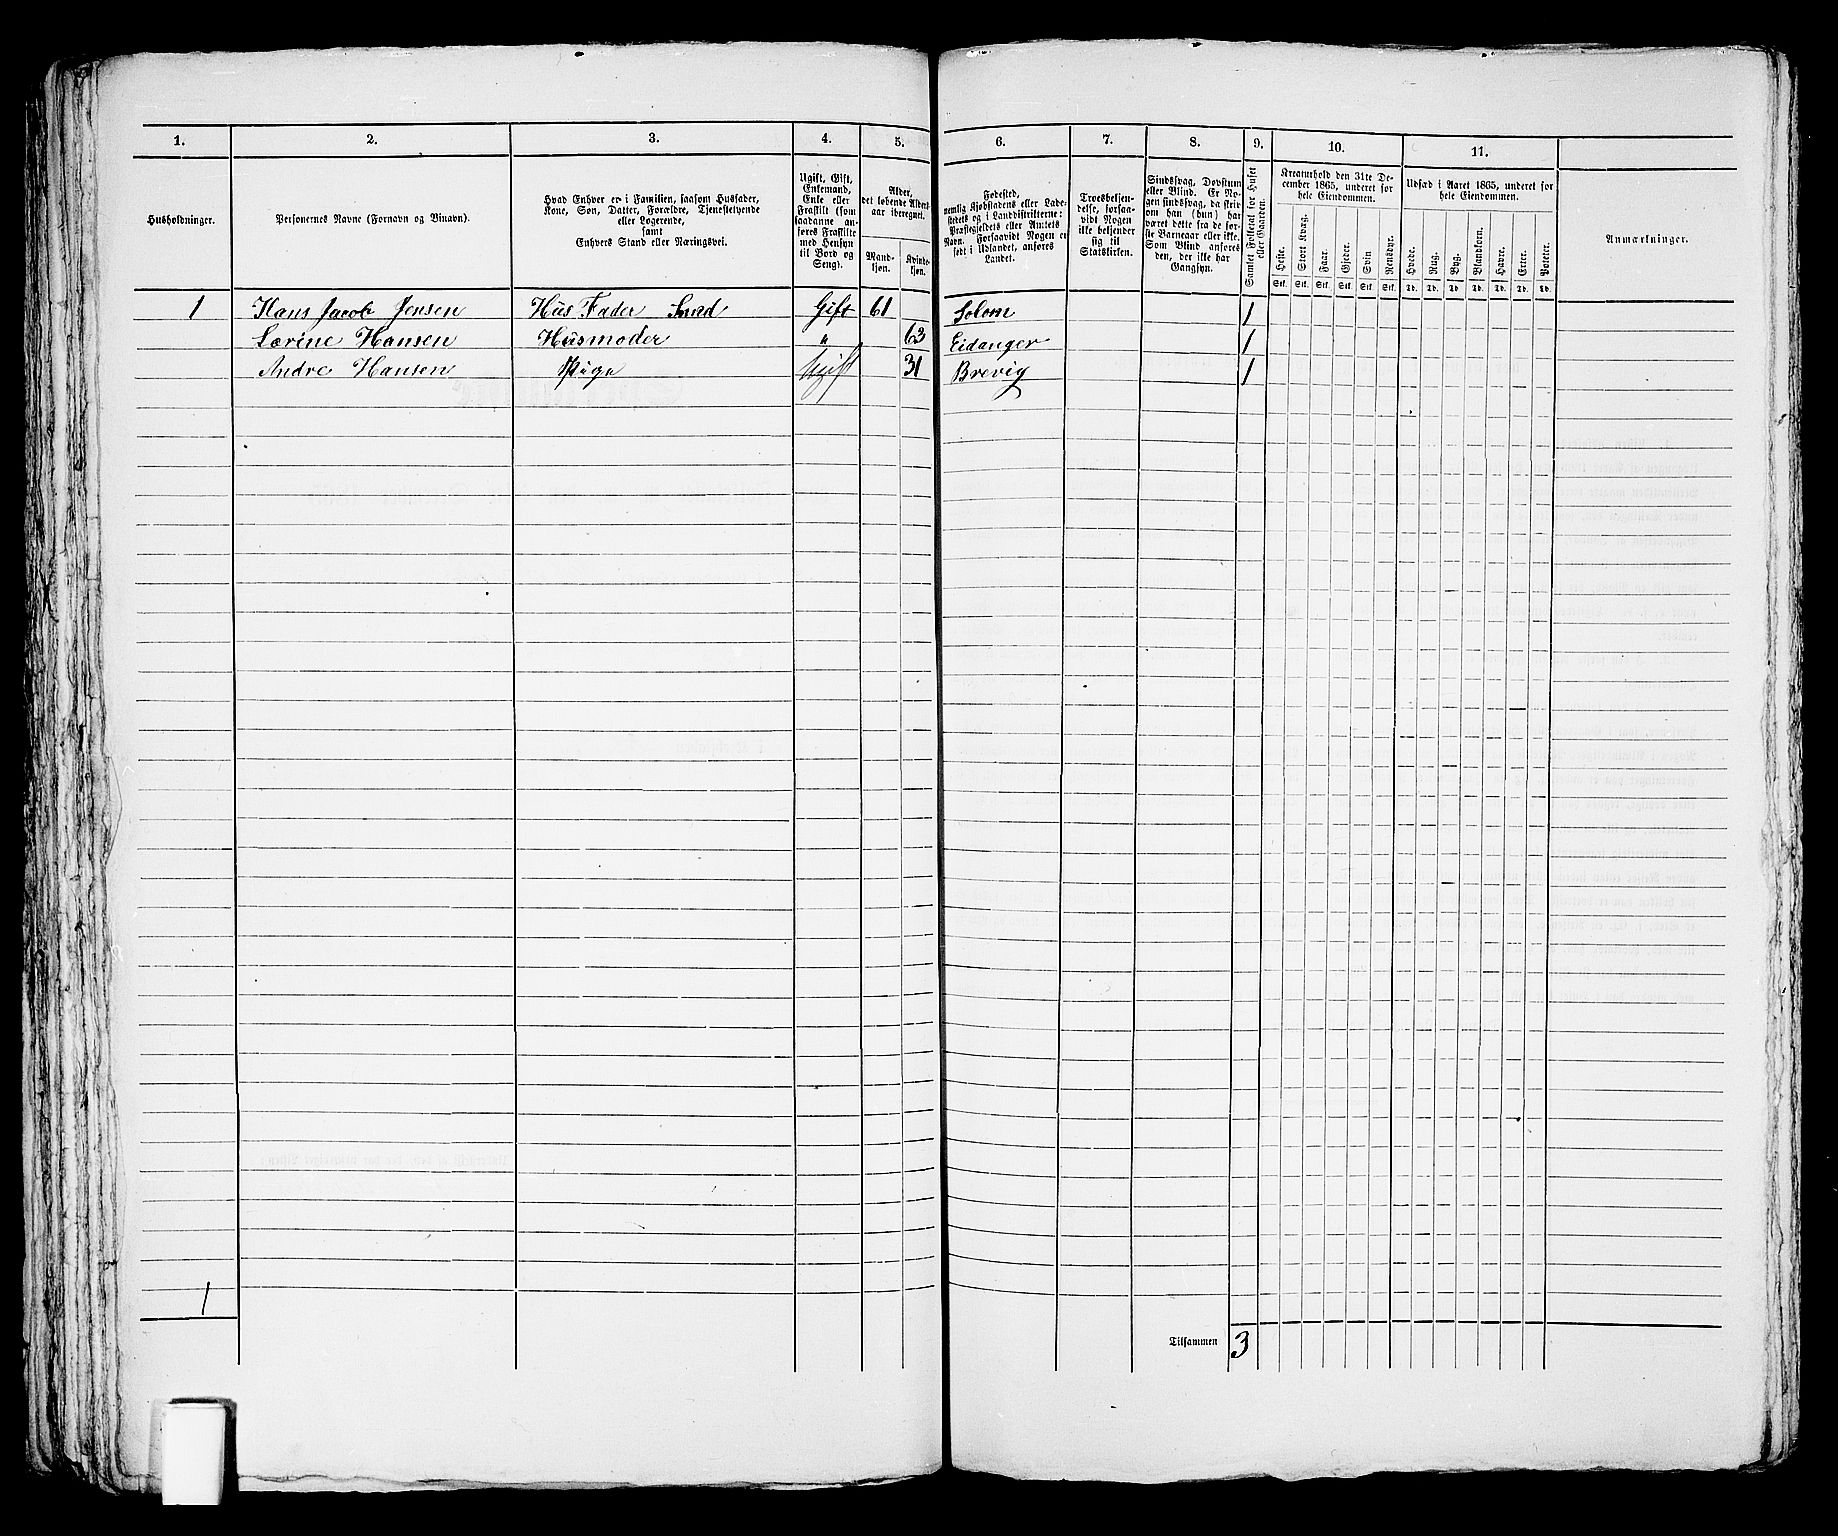 1. 2. 3. 4. 5. 6. 7. 8. 9. 10. 11.
Husholdninger.
Personernes Navne (Fornavn og Binavn).
Hvad Enhver er i Familien, saasom Husfader,
Kone, Søn, Datter, Forældre, Tjenestetyende
eller Logerende,
samt
Enhvers Stand eller Næringsvei.
Ugift, Gift,
Enkemand,
Enke eller
Fraskilt (som
saadanne an-
føres Fraskilte
med Hensyn
til Bord og
Seng).
Alder,
det løbende Alders-
aar iberegnet.
Mand-
kjøn.
Kvinde-
kjøn.
Fødested,
nemlig Kjøbstadens eller Lade-
stedets og i Landdistrikterne:
Præstegjeldets eller Amtets
Navn. Forsaavidt Nogen er
født i Udlandet, anføres
Landet.
Troesbekjen-
delse, forsaa-
vidt Nogen
ikke bekjender
sig til
Statskirken.
Sindssvag, Døvstum
eller Blind. Er No-
gen sindssvag, da skri-
ves om han (hun) har
været dette fra de før-
ste Barneaar eller ikke.
Som Blind anføres
den, der ikke har
Gangsyn.
Samlet Folketal for Huset
eller Gaarden.
Kreaturhold den 31te De-
cember 1865, underet for
hele Eiendommen.
Heste. Stort Kvæg. Faar. Gjeder. Svin Rensdyr.
Stk. Stk. Stk. Stk. Stk. Stk.
Udsæd i Aaret 1865, underet for
hele Eiendommen.
Hvede. Rug. Byg. Blandkorn. Havre. Erter. Poteter.
Td. Td. Td. Td. Td. Td. Td.
Anmærkninger.
1 Hans Jacob Jensen Hus Fader Gift 61 Solom 1
Lærine Hansen Husmoder " 63 Eidanger 1
Andre Hansen Pige Ugift 31 Brevig 1
1
Tilsammen 3